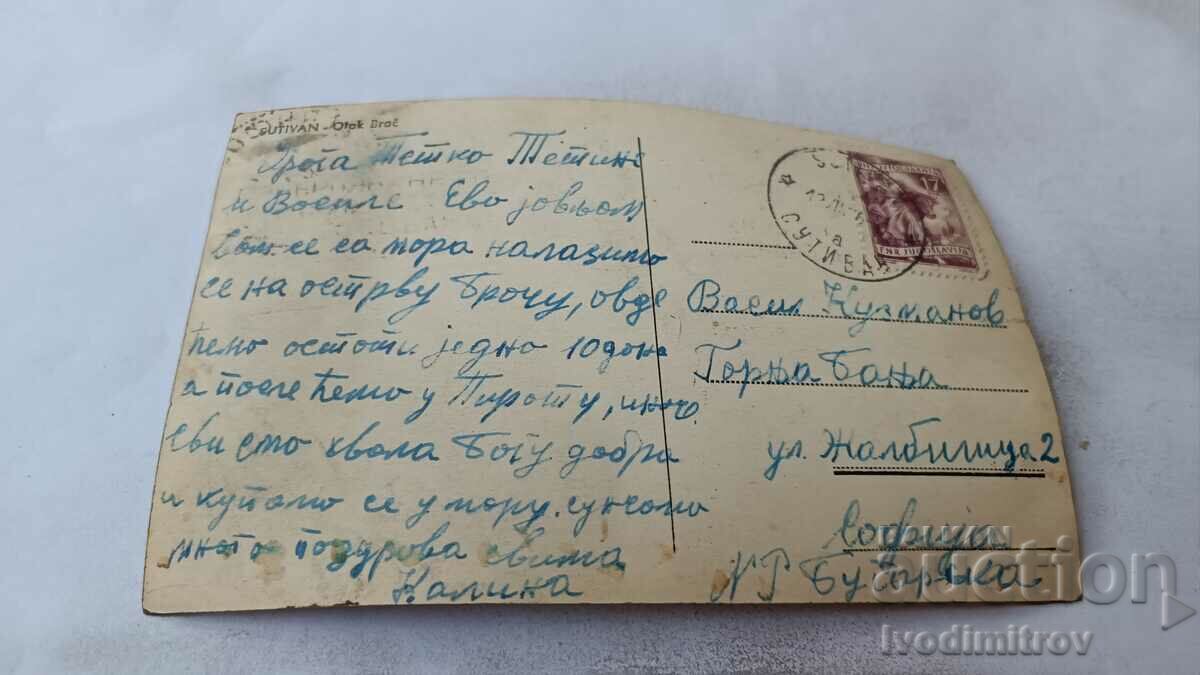 SUTIVAN - Otok Brač
Драга Тетко Тетине
и Василе Ево јављам
Вам се са мора налазимо
се на острву Брачу, овде
ћемо остати једно 10 дана
а после ћемо у Пироту, иначе
сви смо хвала Богу добри
и купамо се у мору. сунчамо
много поздрава свима
Калина
17
FNR JUGOSLAVIJA
СУТИВАН
Васил Кузманов
Горња Бања
ул. Жалбигица 2
Софија
НР Бугарска
BALKAN
auction
Ivodimitrov